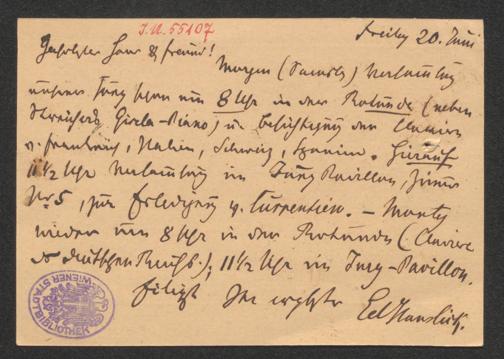 I.N. 55107
Freitag 20. Juni
Geehrter Herr & Freund!
Morgen (Samstag) Versammlung
unserer Jury schon um 8 Uhr in der Rotunde (neben
Streichers Piano) u. Besichtigung der Claviere
v. Frankreich, Italien, Schweiz, Spanien. Hierauf
11 1/2 Uhr Versammlung im Jury Pavillon, Zimmer
Nr 5, zur Erledigung v. – Montag
wieder um 8 Uhr in der Rotunde (Claviere
des deutschen Reichs), 11 1/2 Uhr im Jury-Pavillon.
Eiligst Ihr ergebster Ed Hanslick.
WIENER STADTBIBLIOTHEK